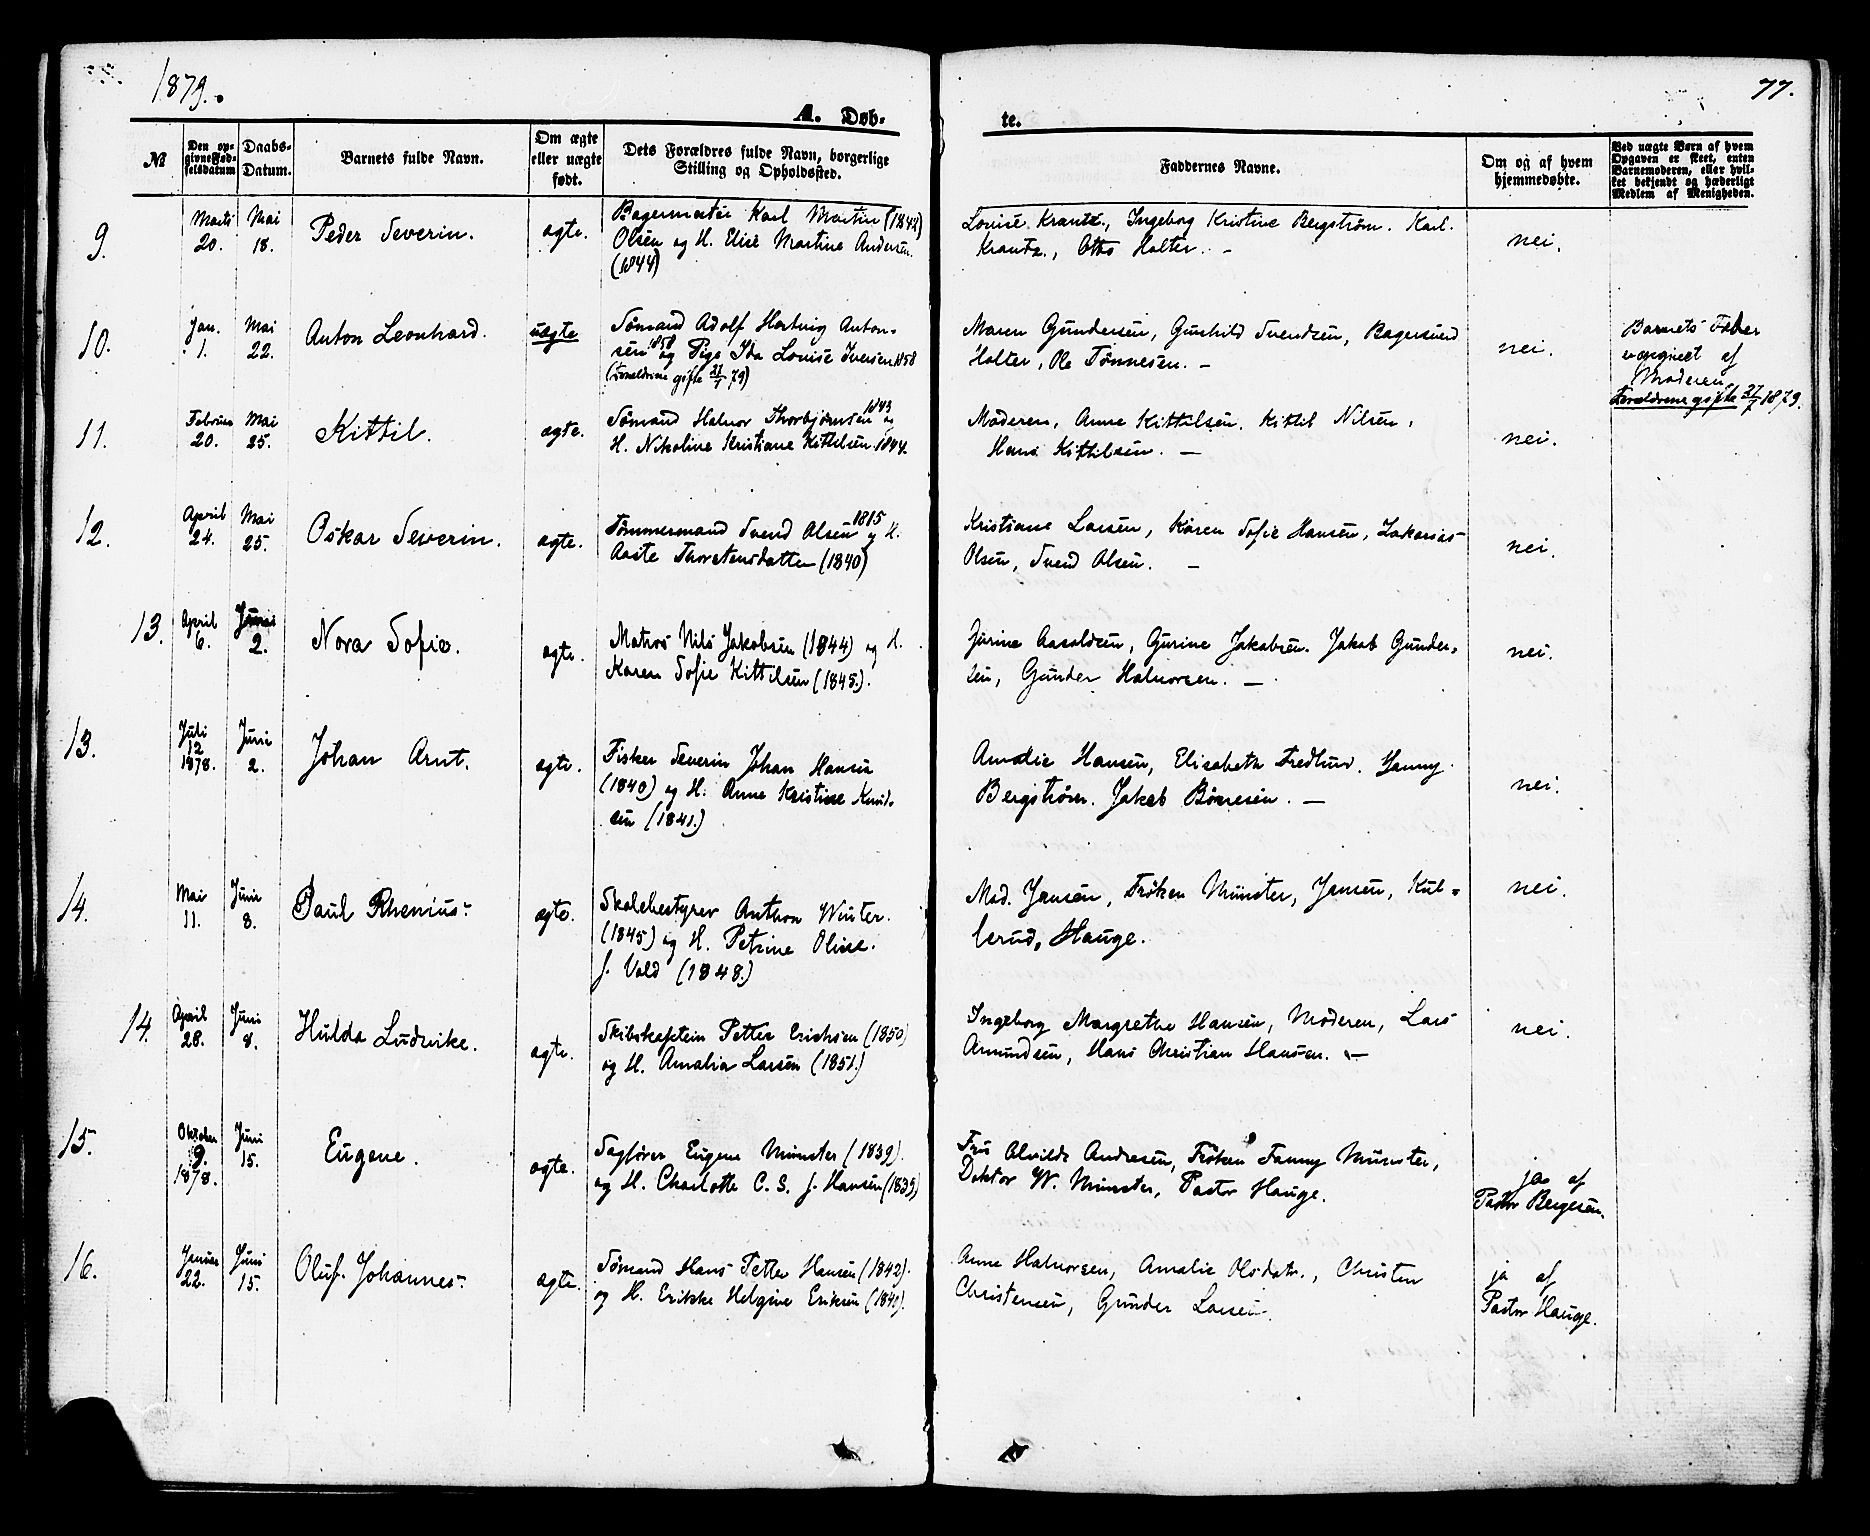 1879.
77.
A. Døb-
te.
№
Den op-
givne Fød-
selsdatum
Daabs-
Datum.
Barnets fulde Navn.
Om ægte
eller uægte
født.
Dets Forældres fulde Navn, borgerlige
Stilling og Opholdssted.
Faddernes Navne.
Om og af hvem
hjemmedøbte.
Ved uægte Børn af hvem
Opgaven er skeet, enten
Barnemoderen, eller hvil-
ket bekjendt og hæderligt
Medlem af Menigheden.
9.
Marts
20.
Mai
18.
Peder Severin.
ægte.
Bagermester Karl Martin (1842)
Olsen og H. Elise Martine Andersen.
(1844)
Louise Krantz., Ingeborg Kristine Bergstrøm. Karl.
Krantz., Otto Holter. –
nei.
10.
Jan.
1.
Mai
22.
Anton Leonhard.
uægte
Sømand Adolf Hartvig Anton-
sen 1858 og Pige Ida Louise Iversen 1858
(Forældrene gifte 27/7 79)
Maren Gundersen, Gunhild Svendsen, Bagersvend
Holter, Ole Tønnesen. –
nei.
Barnets Fader
er opgivet af
Moderen.
Forældrene gifte 27/7 1879.
11.
Februar
20.
Mai
25.
Kittil.
ægte.
Sømand Halvor Thorbjørnsen 1843 og
H. Nikoline Kristiane Kittilsen 1844.
Moderen, Anne Kittilsen. Kittil Nilsen,
Hans Kittilsen. –
nei.
12.
April
24.
Mai
25.
Oskar Severin.
ægte.
Tømmermand Svend Olsen 1815 og H.
Aaste Thorstensdatter (1840)
Kristiane Larsen, Karen Sofie Hansen, Zakarias
Olsen, Svend Olsen. –
nei.
13.
April
6.
Juni
2.
Nora Sofie.
ægte.
Matros Nils Jakobsen (1844) og H.
Karen Sofie Kittilsen (1845.).
Jørine Aasoldsen, Gurine Jakobsen. Jakob Gunder-
sen, Gunder Halvorsen. –
nei.
13.
Juli
12
1878.
Juni
2.
Johan Arnt.
ægte.
Fisker Severin Johan Hansen
(1840) og H. Anne Kristine Knud-
sen (1841.)
Amalie Hansen, Elisabeth Fredlund. Jenny
Bergstrøm. Jakob Bømesen. –
nei.
14.
Mai
11.
Juni
8.
Paul Rhenius.
ægte.
Skolebestyrer Anthon Winter.
(1845) og H. Petrine Oline.
f. Vold (1848.)
Mad. Jensen, Frøken Münster, Jensen, Kul-
lerud, Hauge.
nei.
14.
April
28.
Juni
8.
Hulda Ludvike.
ægte.
Skibskaptein Petter Erichsen (1850)
og H. Amalia Larsen (1851.)
Ingeborg Margrethe Hansen, Moderen, Lars
Amundsen, Hans Christian Hansen. –
nei.
15.
Oktober
9.
1878.
Juni
15.
Eugene.
ægte.
Sagfører Eugene Münster (1839).
og H. Charlotte C. S. f. Hansen (1839)
Fru Alvilde Andresen, Frøken Fanny Münster,
Doktor W. Münster, Pastor Hauge.
ja af
Pastor Bergesen.
16.
Januar
22.
Juni
15.
Oluf Johannes.
ægte.
Sømand Hans Petter Hansen (1842).
og H. Erikke Helgine Eriksen (1840).
Anne Halvorsen, Amalie Olsdatr., Christen
Christensen, Gunder Larsen.
ja af
Pastor Hauge.